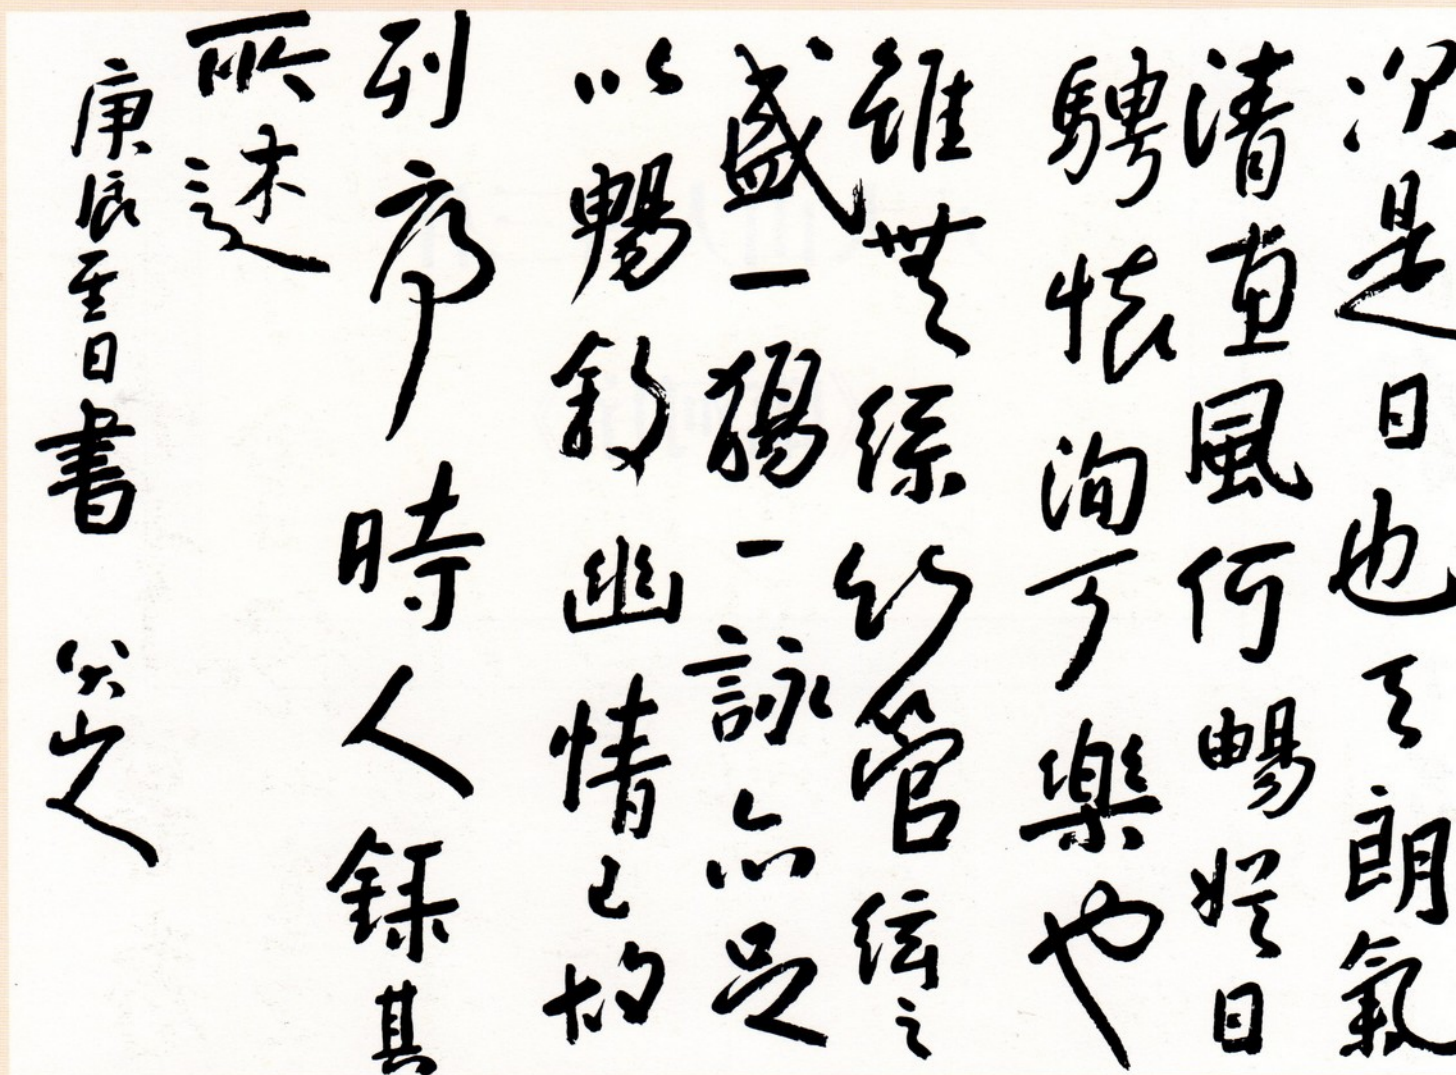 況是日也天朗氣
清惠風何暢娛日
騁懷洵可樂也
雖無絲竹管絃之
盛一觴一詠亦足
以暢敘幽情已故
列序時人錄其
所述
庚辰至日書 八大山人